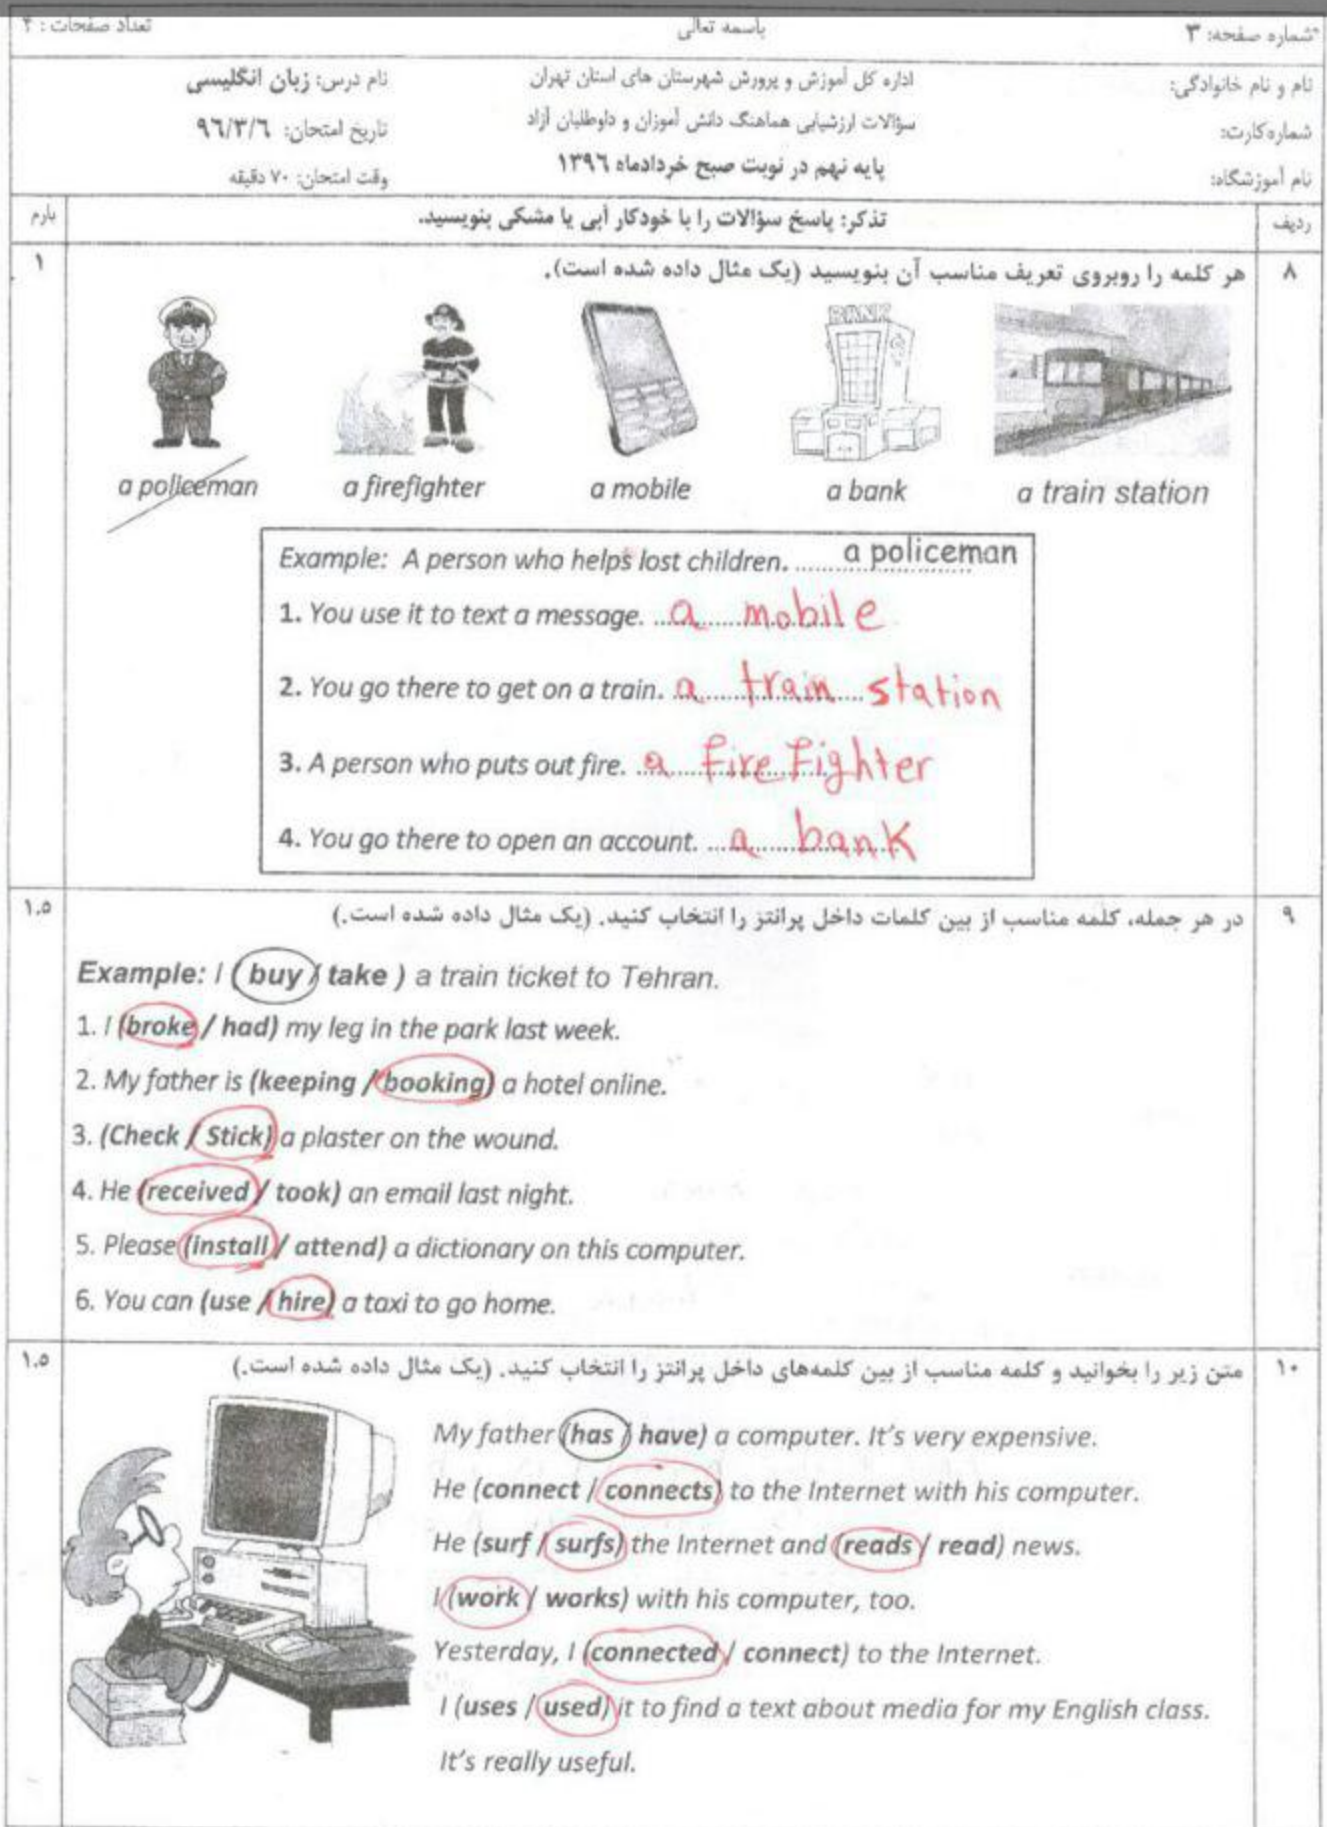 *شماره صفحه: ۳
باسمه تعالی
تعداد صفحات: ۴
نام و نام خانوادگی:
اداره کل آموزش و پرورش شهرستان های استان تهران
نام درس: زبان انگلیسی
شماره‌کارت:
سؤالات ارزشیابی هماهنگ دانش آموزان و داوطلبان آزاد
تاریخ امتحان: ۹۶/۳/۶
نام آموزشگاه:
پایه نهم در نوبت صبح خردادماه ۱۳۹۶
وقت امتحان: ۷۰ دقیقه
ردیف
تذکر: پاسخ سؤالات را با خودکار آبی یا مشکی بنویسید.
بارم
۸
هر کلمه را روبروی تعریف مناسب آن بنویسید (یک مثال داده شده است).
۱
BANK
a policeman a firefighter a mobile a bank a train station
Example: A person who helps lost children. ........a policeman
1. You use it to text a message. ...a mobile
2. You go there to get on a train. a train station
3. A person who puts out fire. a firefighter
4. You go there to open an account. ...a bank
۹
در هر جمله، کلمه مناسب از بین کلمات داخل پرانتز را انتخاب کنید. (یک مثال داده شده است.)
۱.۵
Example: I ( buy / take ) a train ticket to Tehran.
1. I (broke / had) my leg in the park last week.
2. My father is (keeping / booking) a hotel online.
3. (Check / Stick) a plaster on the wound.
4. He (received / took) an email last night.
5. Please (install / attend) a dictionary on this computer.
6. You can (use / hire) a taxi to go home.
۱۰
متن زیر را بخوانید و کلمه مناسب از بین کلمه‌های داخل پرانتز را انتخاب کنید. (یک مثال داده شده است.)
۱.۵
My father (has / have) a computer. It's very expensive.
He (connect / connects) to the Internet with his computer.
He (surf / surfs) the Internet and (reads / read) news.
I (work / works) with his computer, too.
Yesterday, I (connected / connect) to the Internet.
I (uses / used) it to find a text about media for my English class.
It's really useful.